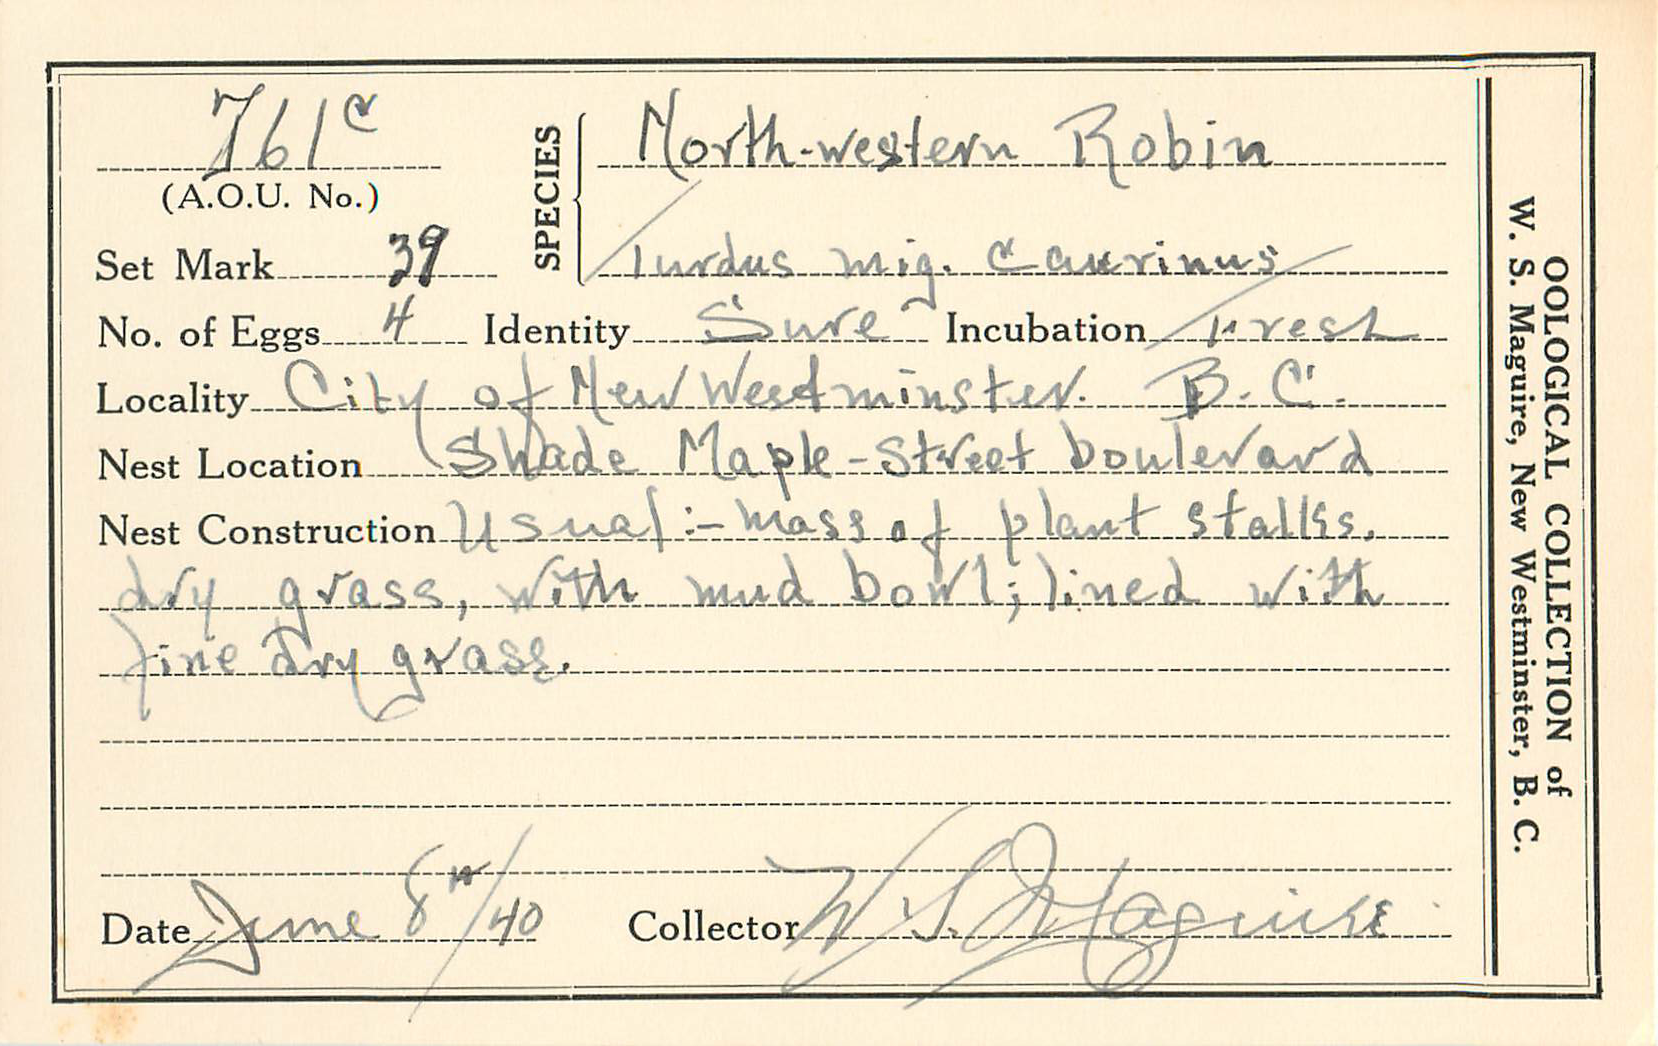 761c
(A.O.U. No.)
SPECIES
North-western Robin
Turdus mig. caurinus
Set Mark 39
No. of Eggs 4 Identity Sure Incubation Fresh
Locality City of New Westminster. B.C.
Nest Location Shade Maple - Street boulevard
Nest Construction Usual :- mass of plant stalks,
dry grass, with mud bowl; lined with
fine dry grass.
Date June 8th/40 Collector W. S. Maguire
OOLOGICAL COLLECTION of
W. S. Maguire, New Westminster, B. C.